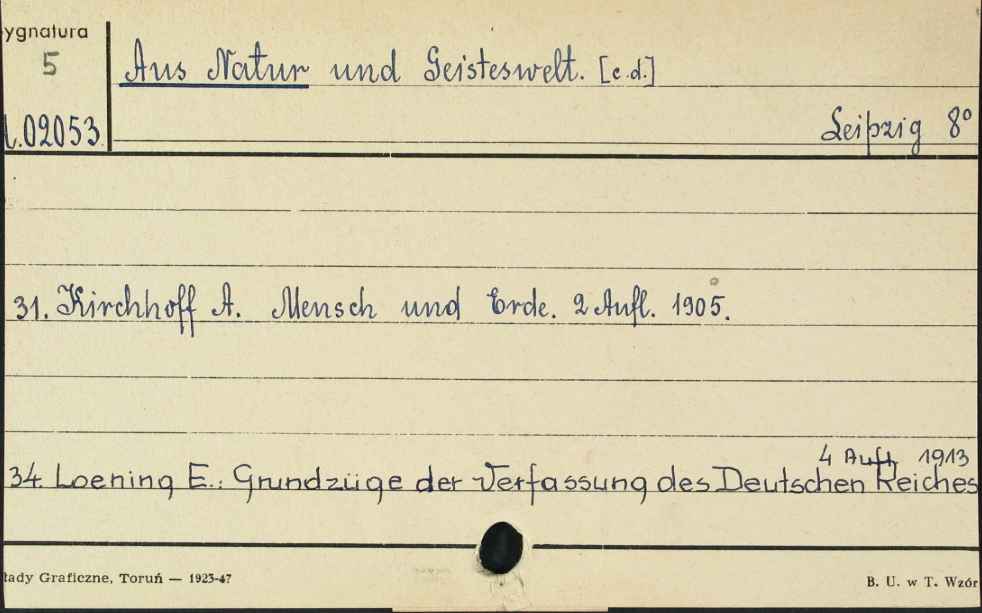 ygnatura
5
Aus Natur und Geisteswelt. [c.d.]
02053
Leipzig 8°
31. Kirchhoff A. Mensch und Erde. 2 Aufl. 1905.
4 Aufl 1913
34 Loening E.: Grundzüge der Verfassung des Deutschen Reiches
łady Graficzne, Toruń — 1923-47
B. U. w T. Wzór